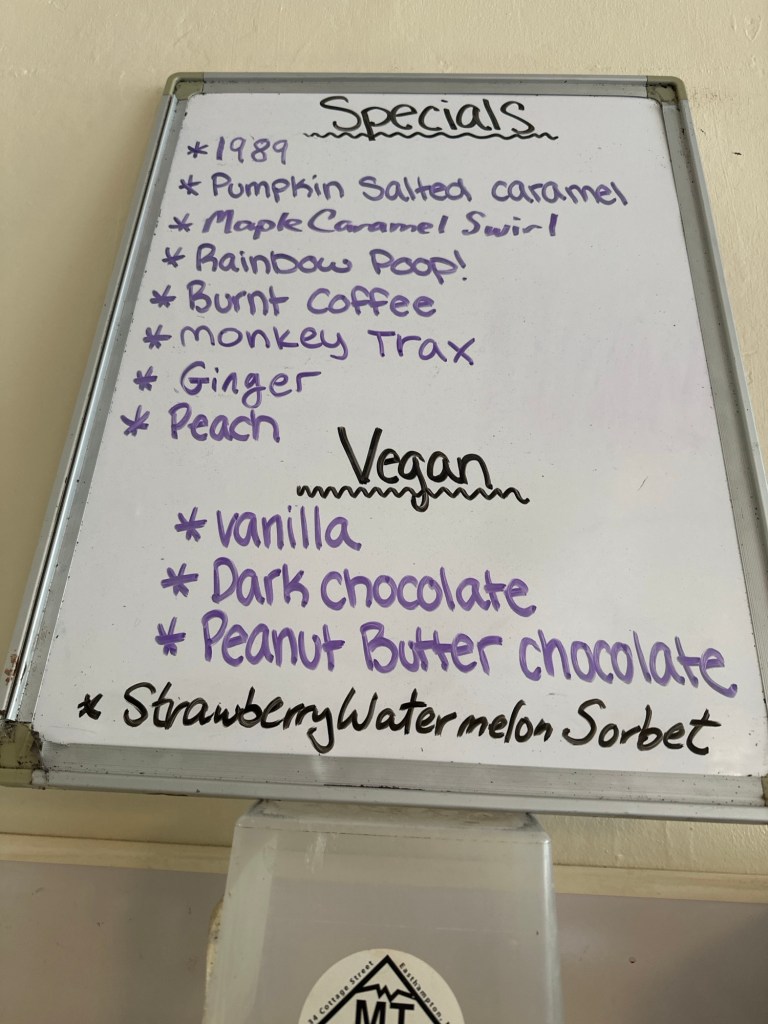 Specials
* 1989
* Pumpkin Salted caramel
* Maple Caramel Swirl
* Rainbow Poop!
* Burnt Coffee
* monkey Trax
* Ginger
* Peach
Vegan
* vanilla
* Dark chocolate
* Peanut Butter chocolate
* Strawberry Watermelon Sorbet
34 Cottage Street Easthampton,
MT